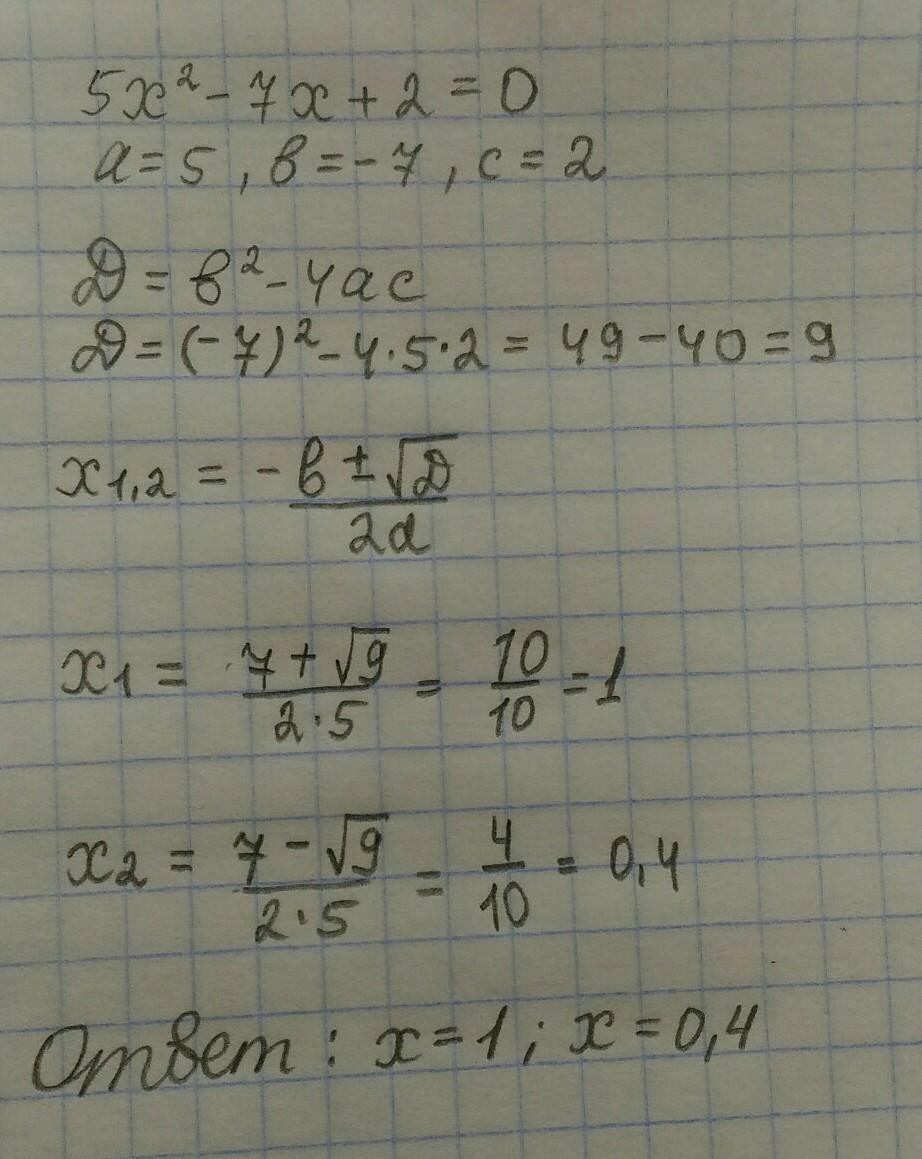 5x² - 7x + 2 = 0
a = 5 , в = -7 , c = 2
D = в² - 4ac
D = (-7)² - 4·5·2 = 49 - 40 = 9
x₁,₂ = -в ± √D / 2a
x₁ = 7 + √9 / 2·5 = 10/10 = 1
x₂ = 7 - √9 / 2·5 = 4/10 = 0,4
Ответ : x = 1 ; x = 0,4